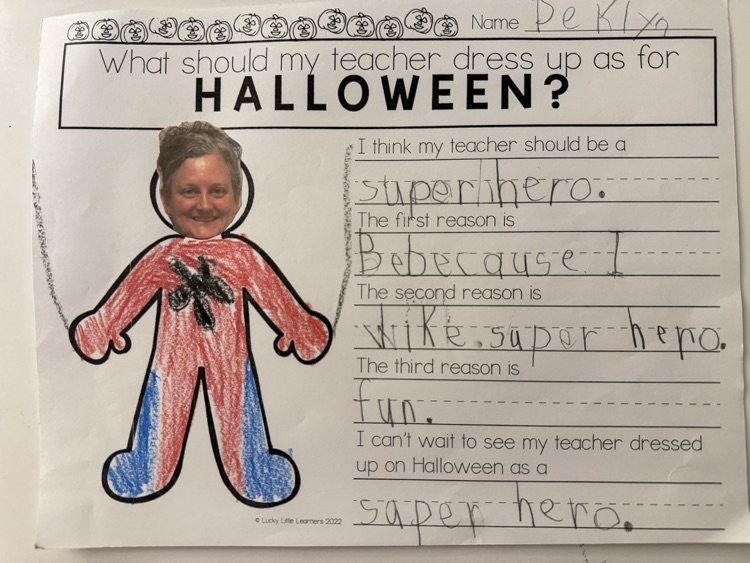 Name DeKlyn
What should my teacher dress up as for
HALLOWEEN?
I think my teacher should be a
super hero.
The first reason is
Bebecause I
The second reason is
wike.super hero.
The third reason is
fun.
I can't wait to see my teacher dressed
up on Halloween as a
saper hero.
© Lucky Little Learners 2022